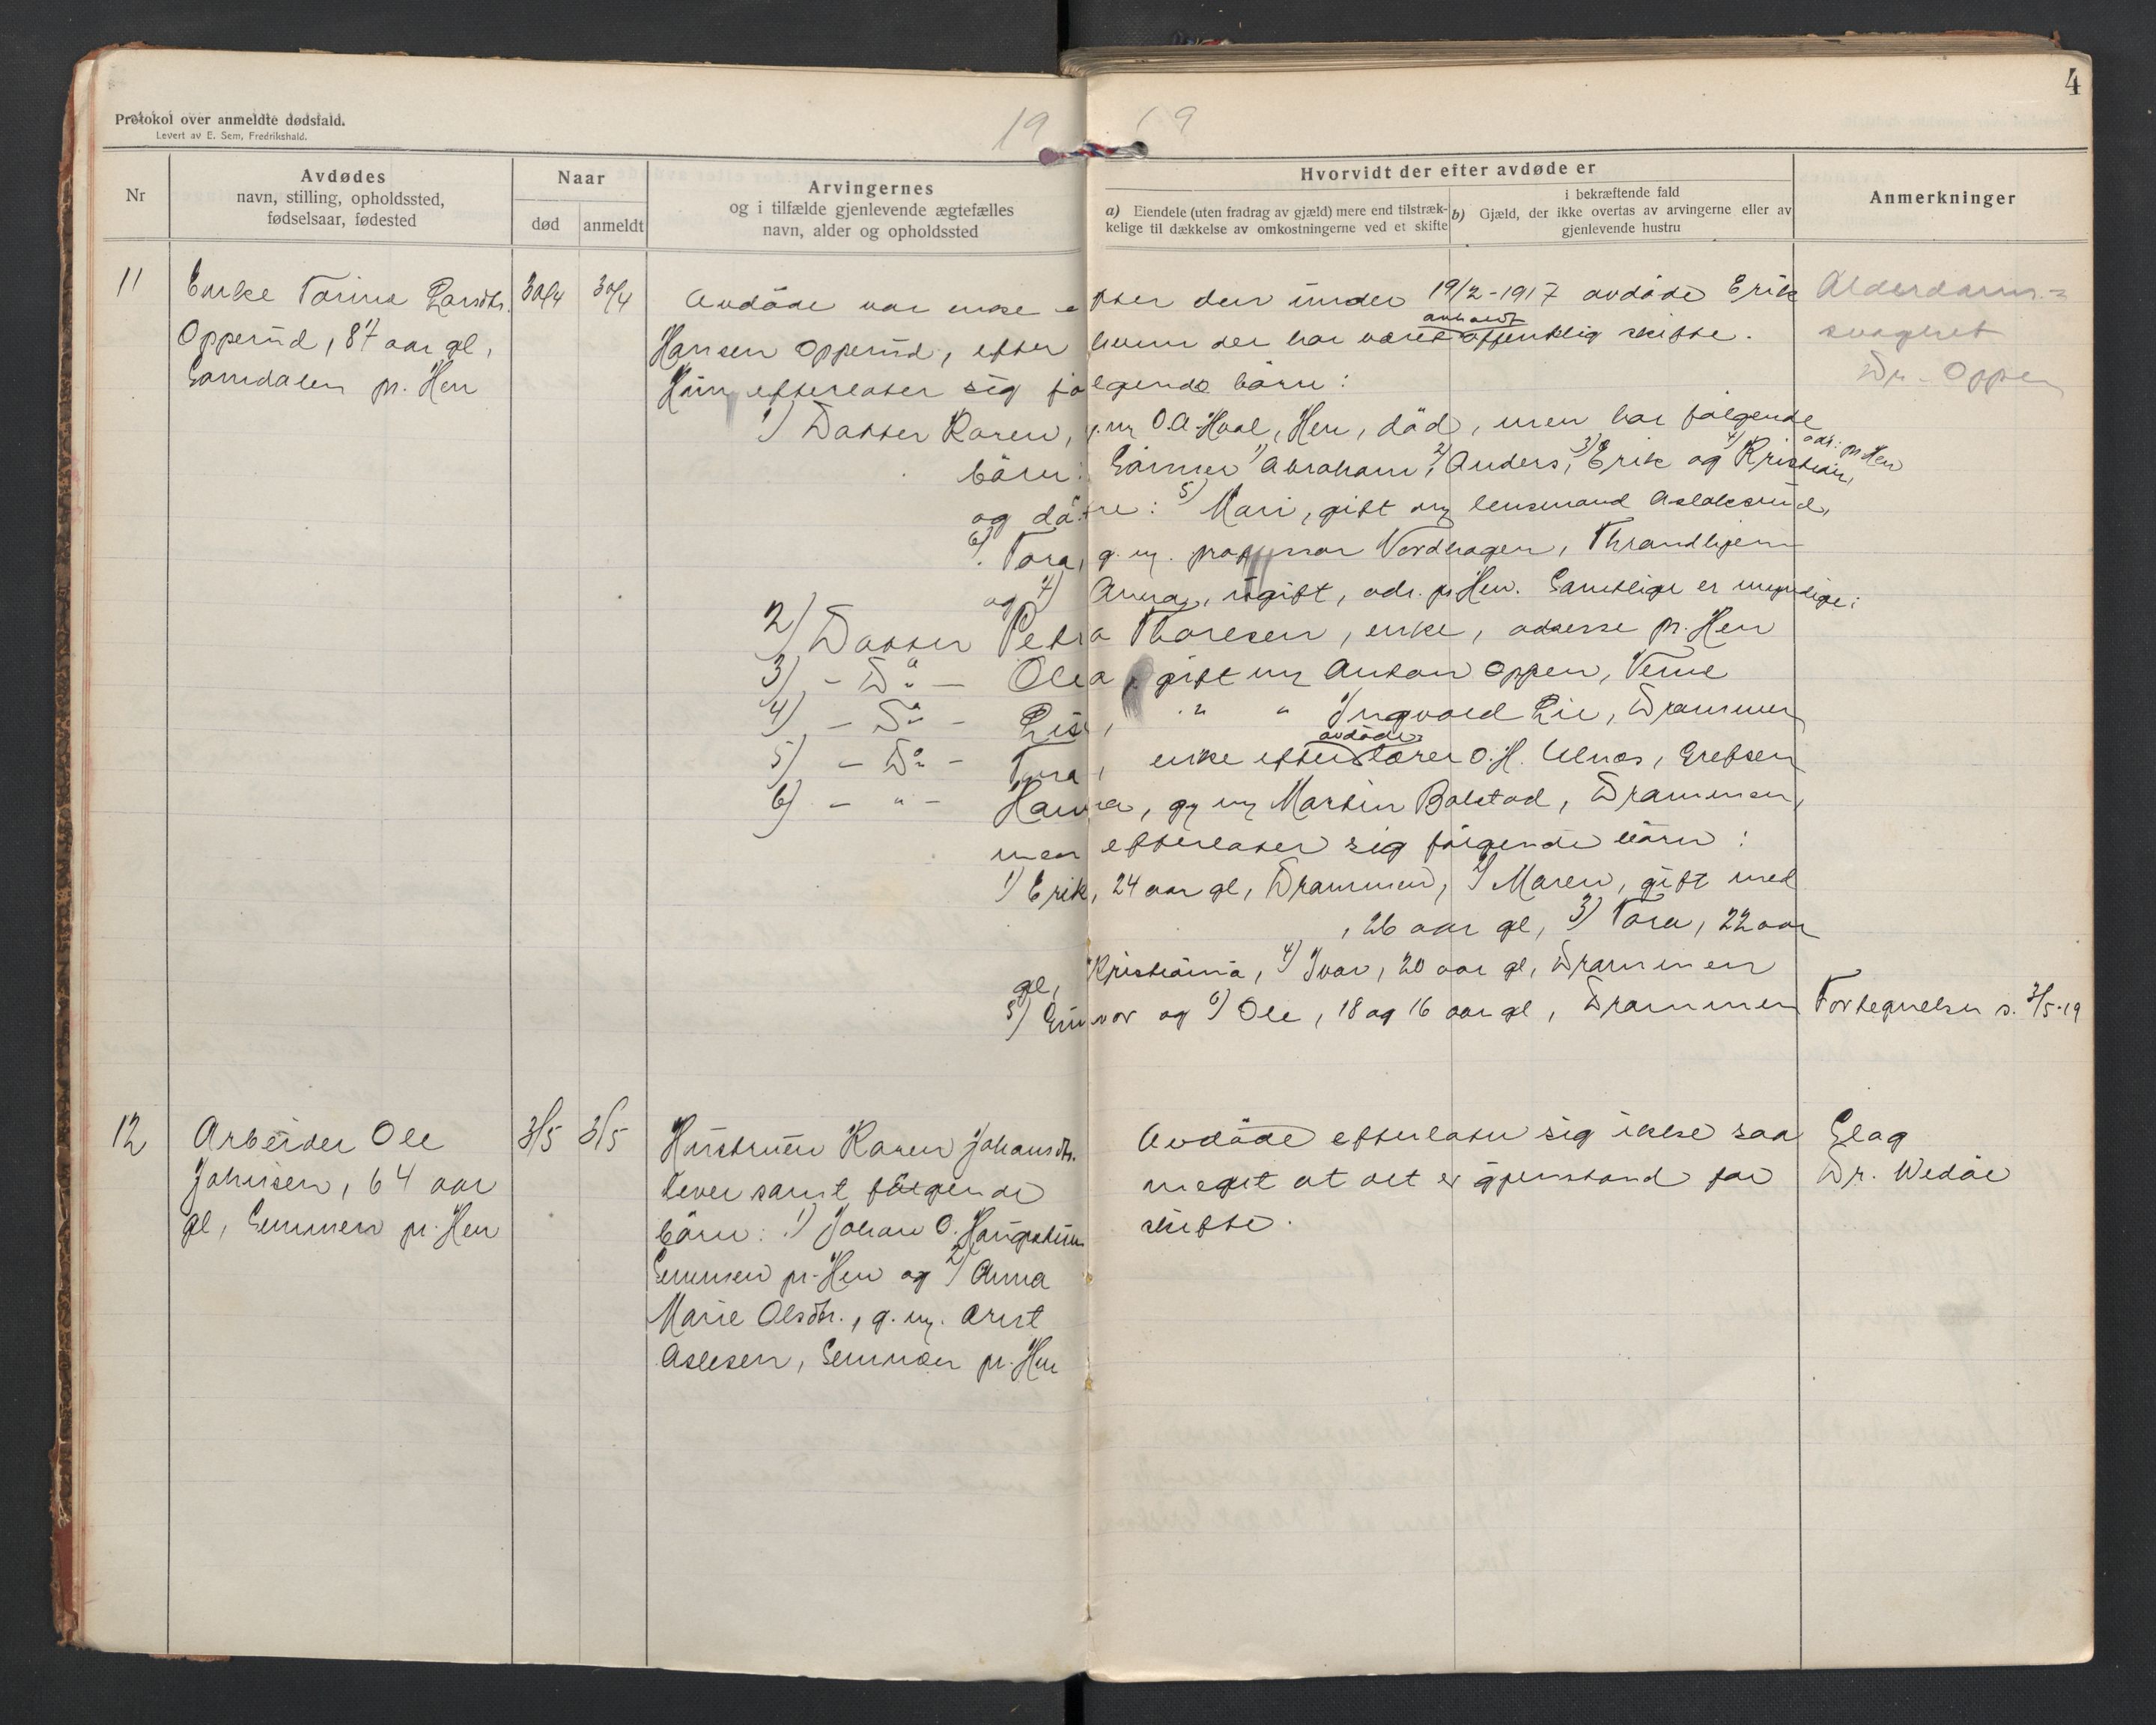 4
Protokol over anmeldte dødsfald.
Levert av E. Sem, Fredrikshald.
19 19
Nr
Avdødes
navn, stilling, opholdssted,
fødselsaar, fødested
Naar
død anmeldt
Arvingernes
og i tilfælde gjenlevende ægtefælles
navn, alder og opholdssted
Hvorvidt der efter avdøde er
a) Eiendele (uten fradrag av gjæld) mere end tilstræk-
kelige til dækkelse av omkostningerne ved et skifte
i bekræftende fald
b) Gjæld, der ikke overtas av arvingerne eller av
gjenlevende hustru
Anmerkninger
11
Enke Torine Larsdtr.
Opperud, 87 aar gl,
pr. Hen
30/4 30/4
Avdøde var enke efter den under 19/2-1917 avdøde Erik
Hansen Opperud, efter hvem der har været avholdt offentlig skifte.
Hun efterlater sig følgende børn:
1) Datter Karen, g. m. O.A. Hval, Hen, død, men har følgende
børn: Sønner 1) Abraham, 2) Anders, 3) Erik og 4) Kristian, adr: pr Hen
og døtre: 5) Mari, gift m. lensmand Aslaksrud,
6) Tora, g. m. professor Nordhagen, Thrandhjem
og 7) Anna, ugift, adr. pr Hen. Samtlige er myndige;
2) Datter Petra Thoresen, enke, adresse pr. Hen
3) - Do - Olea, gift m. Anton Oppen, Veme
4) - Do - Lise, " " Ingvald Lie, Drammen
5) - Do - Tora, enke efter avdøde lærer O.H. Ulnæs, Grefsen
6) - " - Hanna, g. m. Martin Bolstad, Drammen,
men efterlater sig følgende børn:
1) Erik, 24 aar gl, Drammen, 2) Maren, gift med
, 26 aar gl, 3) Tora, 22 aar
gl, Kristiania, 4) Ivar, 20 aar gl, Drammen
5) og 6) Ole, 18 og 16 aar gl, Drammen
Alderdoms-
svaghet
Dr. Oppen
Fortegnelse s. 3/5-19
12
Arbeider Ole
Johnsen, 64 aar
gl, Semmen pr. Hen
3/5 3/5
Hustruen Karen Johansdtr.
lever samt følgende
børn: 1) Johan O.
Semmen pr. Hen og 2) Anna
Marie Olsdtr., g. m. Arnt
Aslesen, Semmen pr. Hen
Avdøde efterlater sig ikke saa
meget at det er gjenstand for
skifte.
Slag
Dr. Wedøe